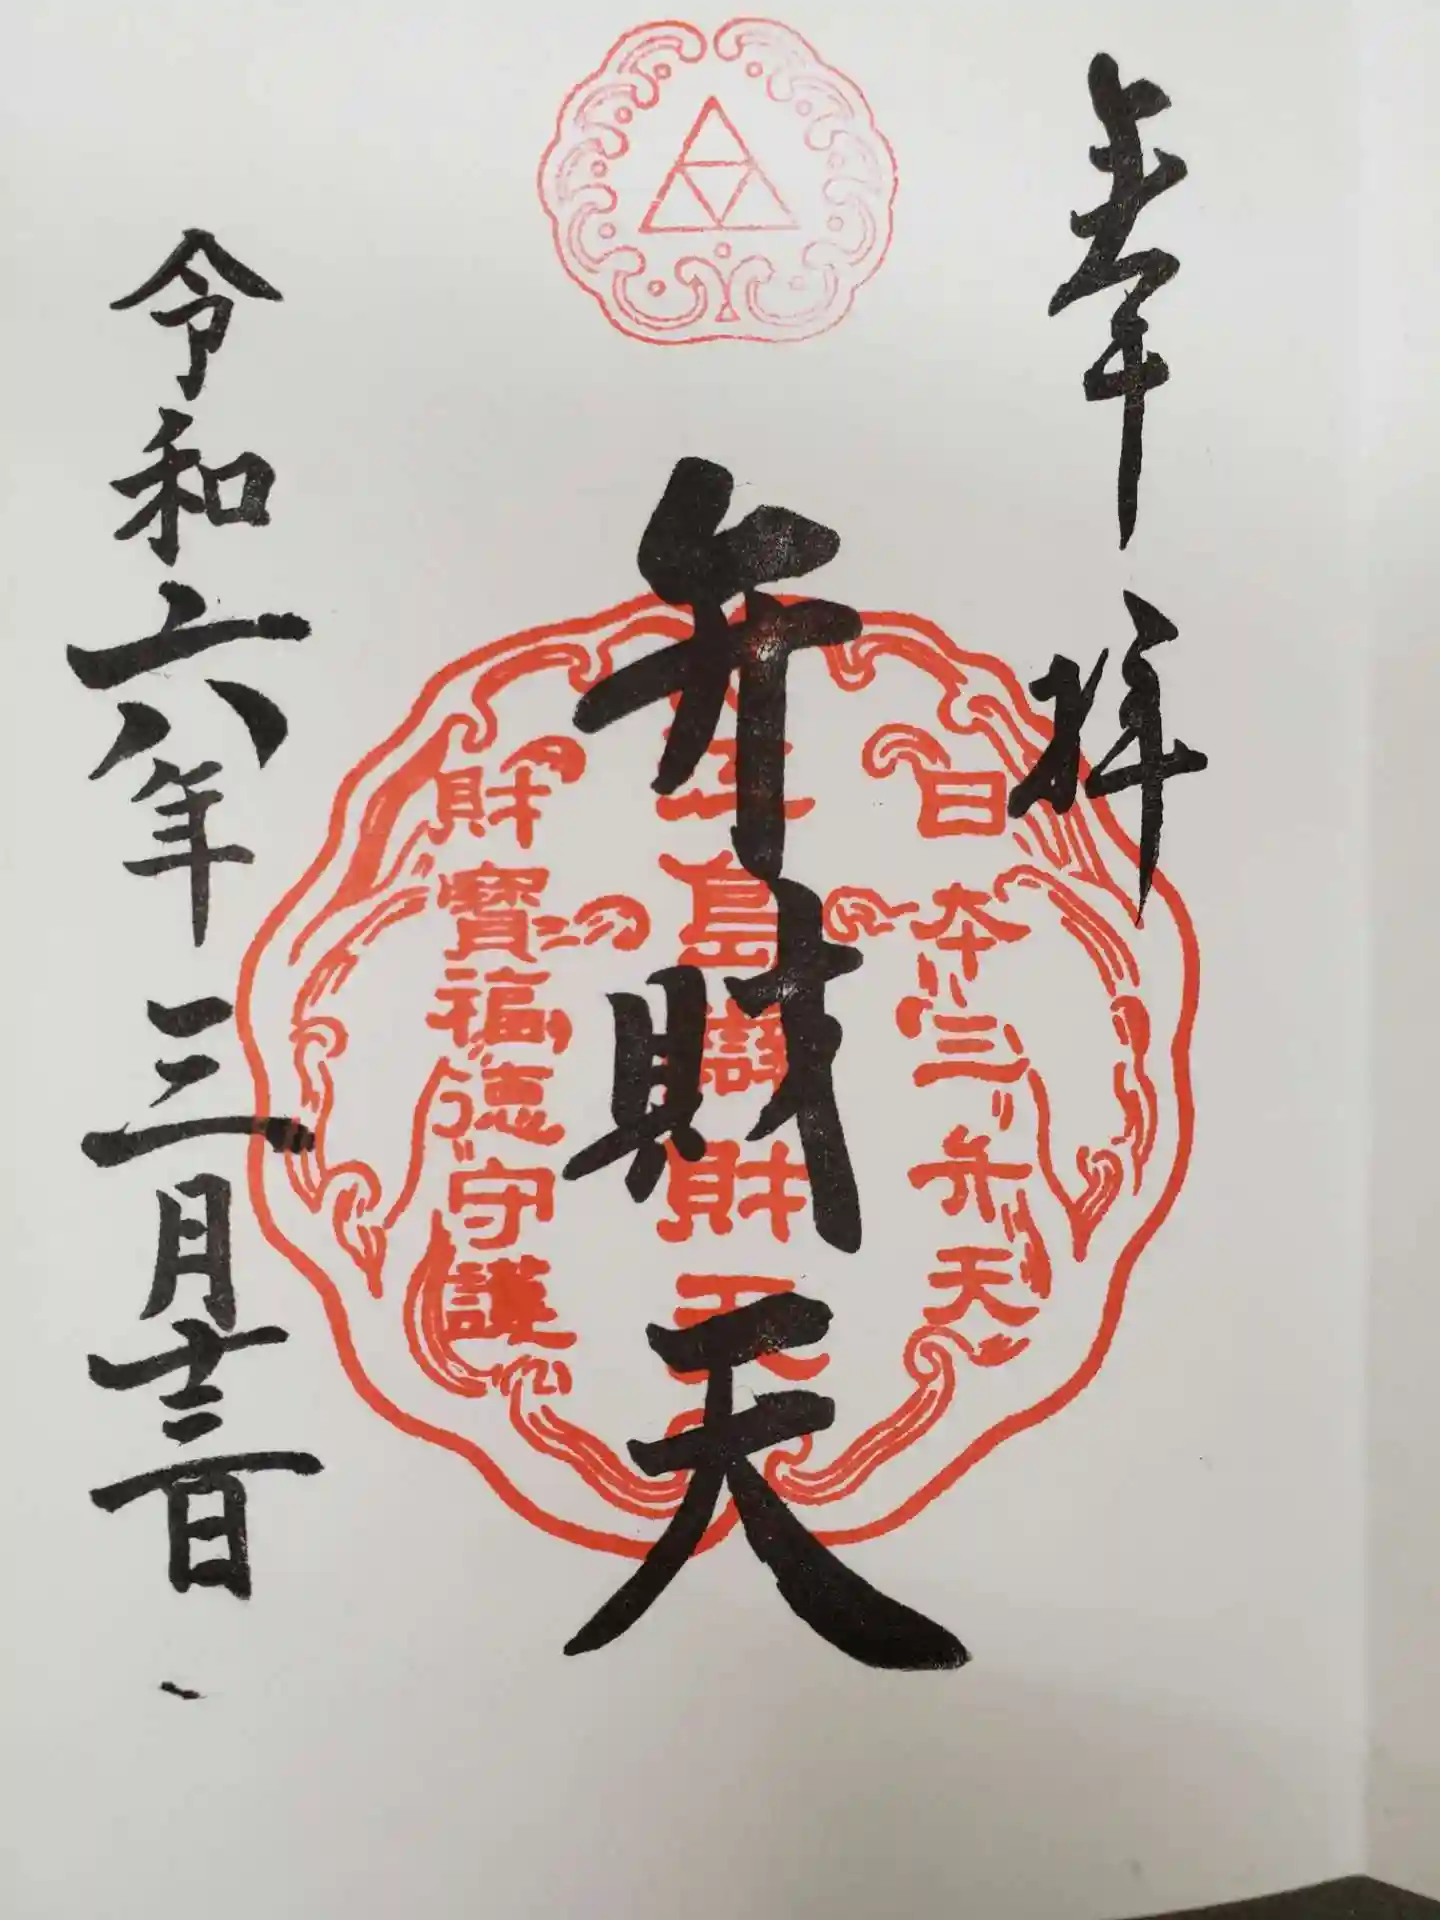 奉拝
日本三弁天
弁財天
江島辯財天
財寶福徳守護
令和六年三月十三日